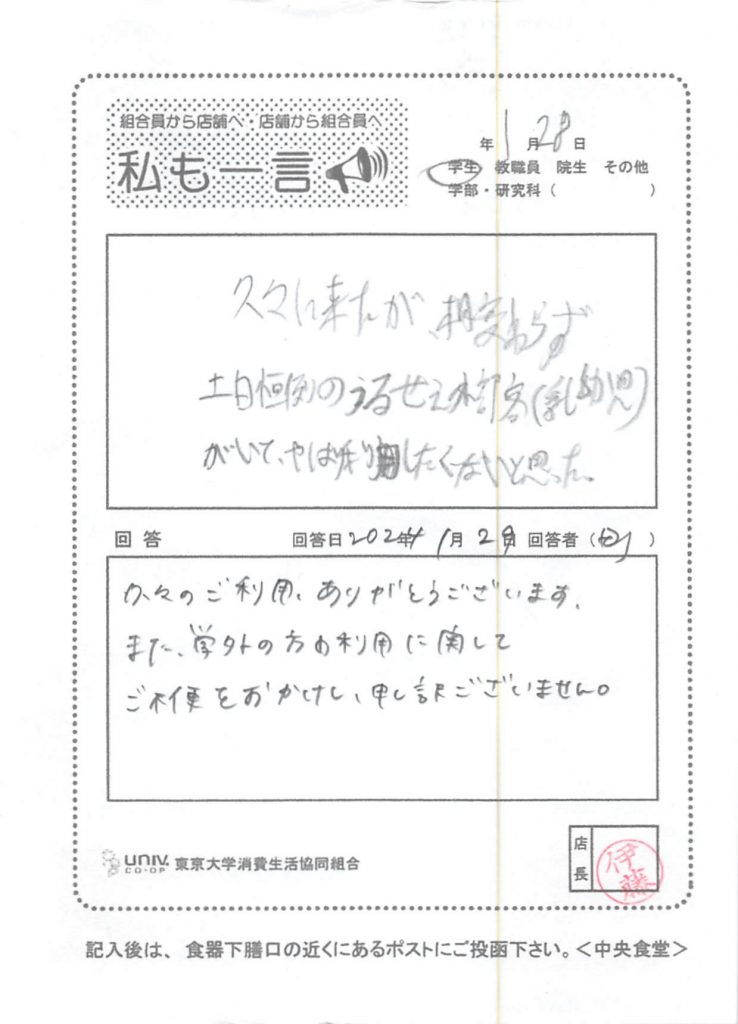 組合員から店舗へ・店舗から組合員へ
私も一言
年 1月 28日
学生 教職員 院生 その他
学部・研究科（ ）
久々に来たが、相変わらず
土日恒例のうるせえ外部客(乳幼児)
がいて、やはり利用したくないと思った。
回答 回答日2024年 1月 29日 回答者（ ）
久々のご利用、ありがとうございます。
また、学外の方の利用に関して
ご不便をおかけし、申し訳ございません。
UNIV. CO-OP 東京大学消費生活協同組合
店長
伊藤
記入後は、食器下膳口の近くにあるポストにご投函下さい。＜中央食堂＞